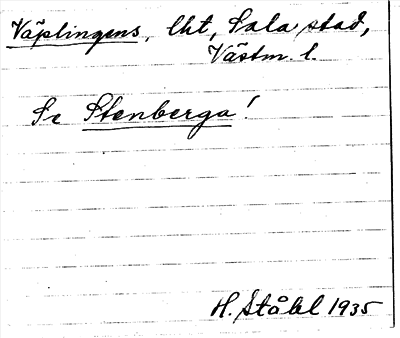 Väplingens, lht, Sala stad,
Västm. l.
Se Stenberga!
H. Ståhl 1935